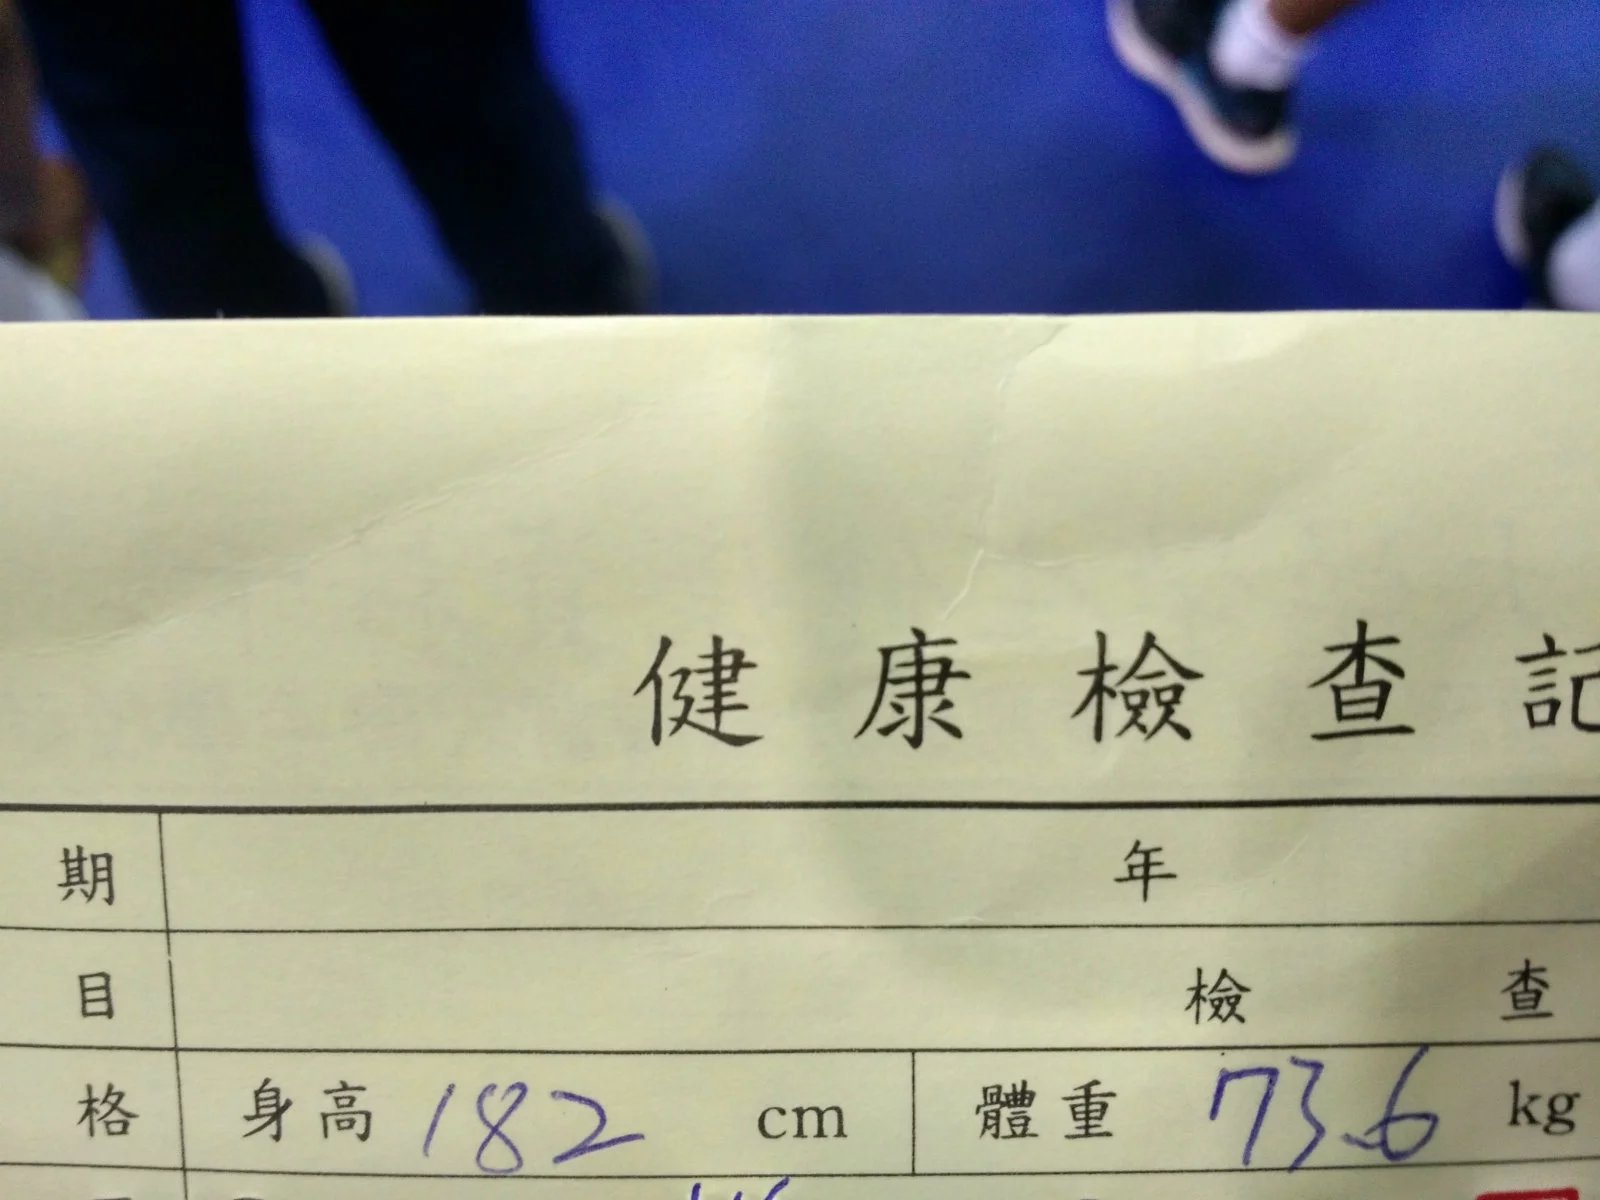 健康檢查記
期 年
目 檢查
格 身高 182 cm 體重 73.6 kg